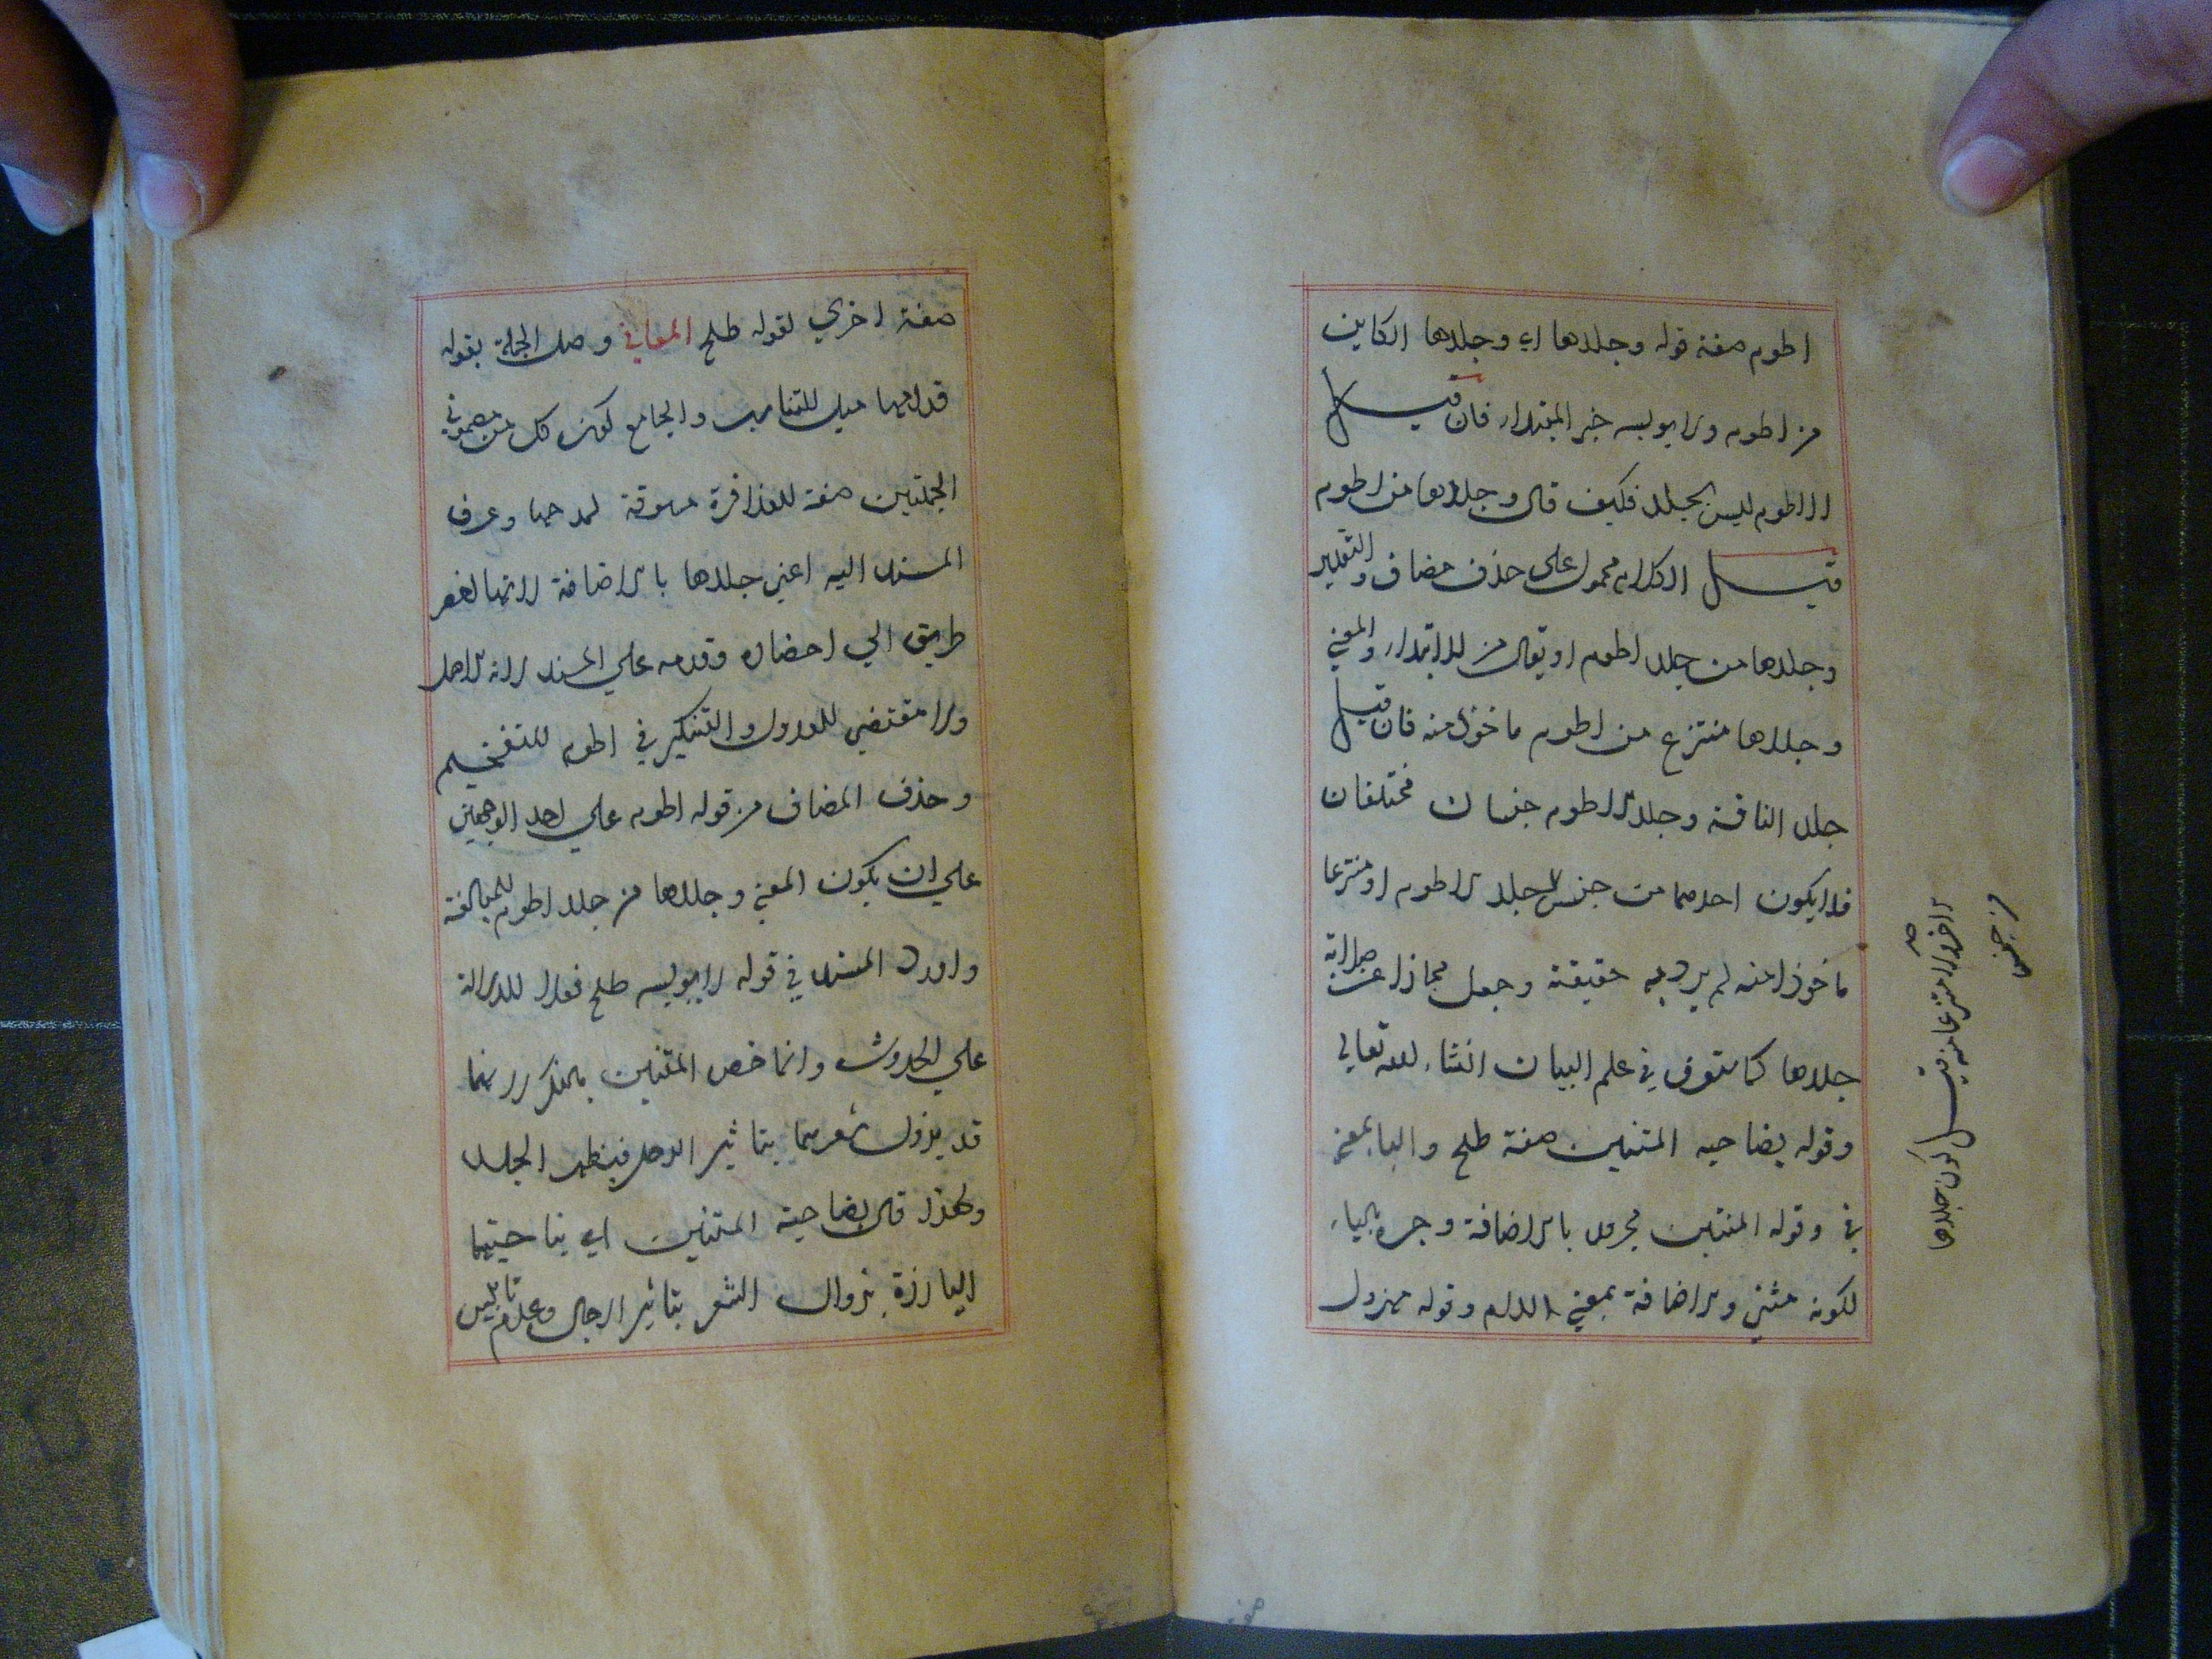 اطوم صفة قوله وجلدها اي وجلدها الكاين
من اطوم ولا يوبسه خبر المبتداء فان قيل
الاطوم ليس بجلد فكيف قال وجلدها من اطوم
قيل الكلام محمول على حذف مضاف والتقدير
وجلدها من جلد اطوم او يقال من للابتداء والمعني
وجلدها منتزع من اطوم ماخوذ منه فان قيل
جلد الناقة وجلد الاطوم جنسان مختلفان
فلا يكون احدهما من جنس جلد الاطوم او منتزعا
ماخوذا منه لم يرد به حقيقة وجعل مجازا عن صلابة
جلدها كما ستعرف في علم البيان انشاء الله تعالي
وقوله بضاحيه المتنين صفة طلح والبا بمعني
في وقوله المتنين مجرور بالاضافة وجره بالياء
لكونه مثني والاضافة بمعني اللام وقوله مهزول
الاخر او منتزعا منه قيل كون جلدها
من جنس
صفة اخري لقوله طلح المعاني وصل الجملة بقوله
قدامها ميل للتناسب والجامع كون كل من مضموني
الجملتين صفة للعذافرة مسوقة لمدحها وعرف
المسند اليه اعني جلدها بالاضافة لانها اخصر
طريق الي احضاره وقدمه علي المسند لانه الاصل
ولا مقتضي للعدول والتنكير في اطوم للتفخيم
وحذف المضاف من قوله اطوم علي احد الوجهين
علي ان يكون المعني وجلدها من جلد اطوم للمبالغة
واورد المسند في قوله لا يوبسه طلح فعلا للدلالة
علي الحدوث وانما خص المتنين بالذكر لانهما
قد يزول شعرهما بتاثير الرحل فيظهر الجلد
ولهذا قال بضاحية المتنين اي بناحيتهما
البارزة بزوال الشعر بتاثير الرحال وعدم تاثير